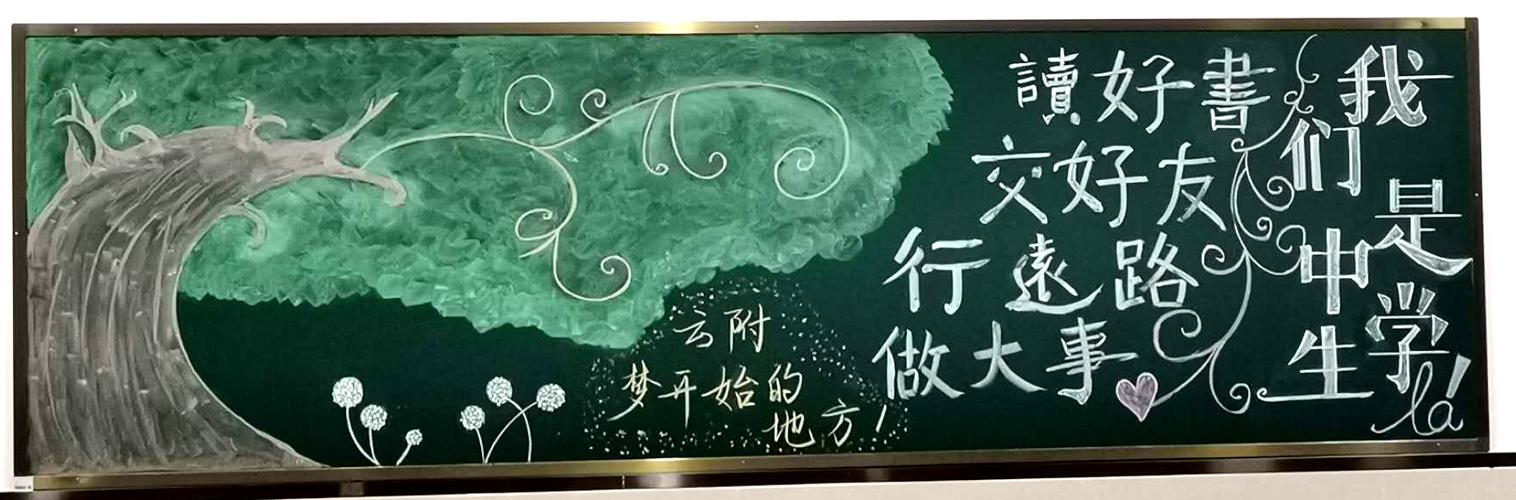 我们是中学生la!
讀好書
交好友
行遠路
做大事
云附
梦开始的
地方!